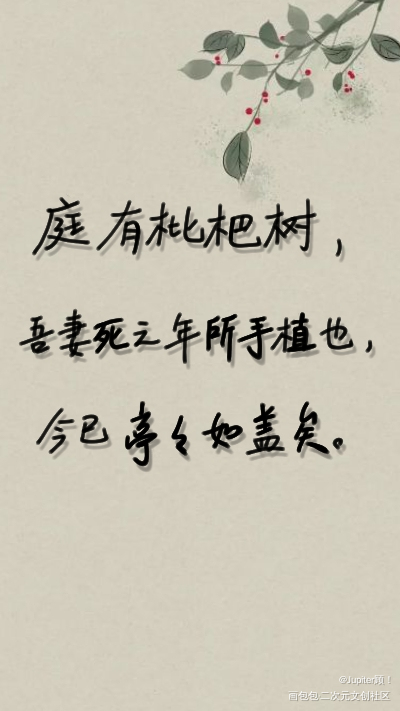 庭有枇杷树，
吾妻死之年所手植也，
今已亭々如盖矣。
@Jupiter顾！
画包包:二次元文创社区